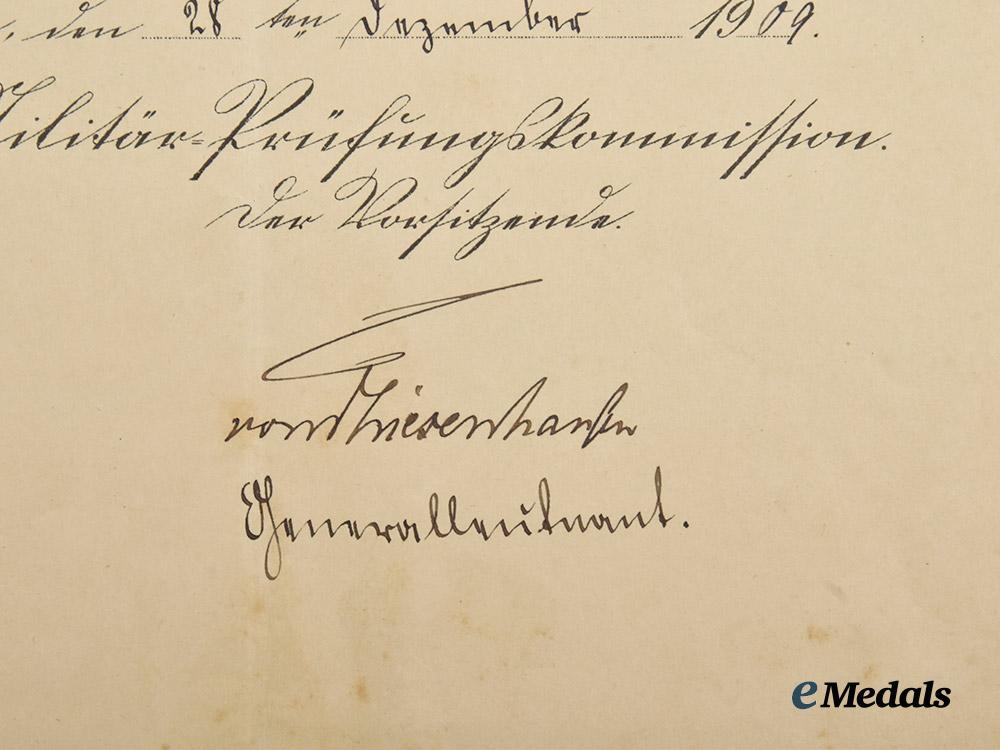 , den 28 ten Dezember 1909.
Militär-Prüfungskommission.
Der Vorsitzende.
von
Generalleutnant.
eMedals